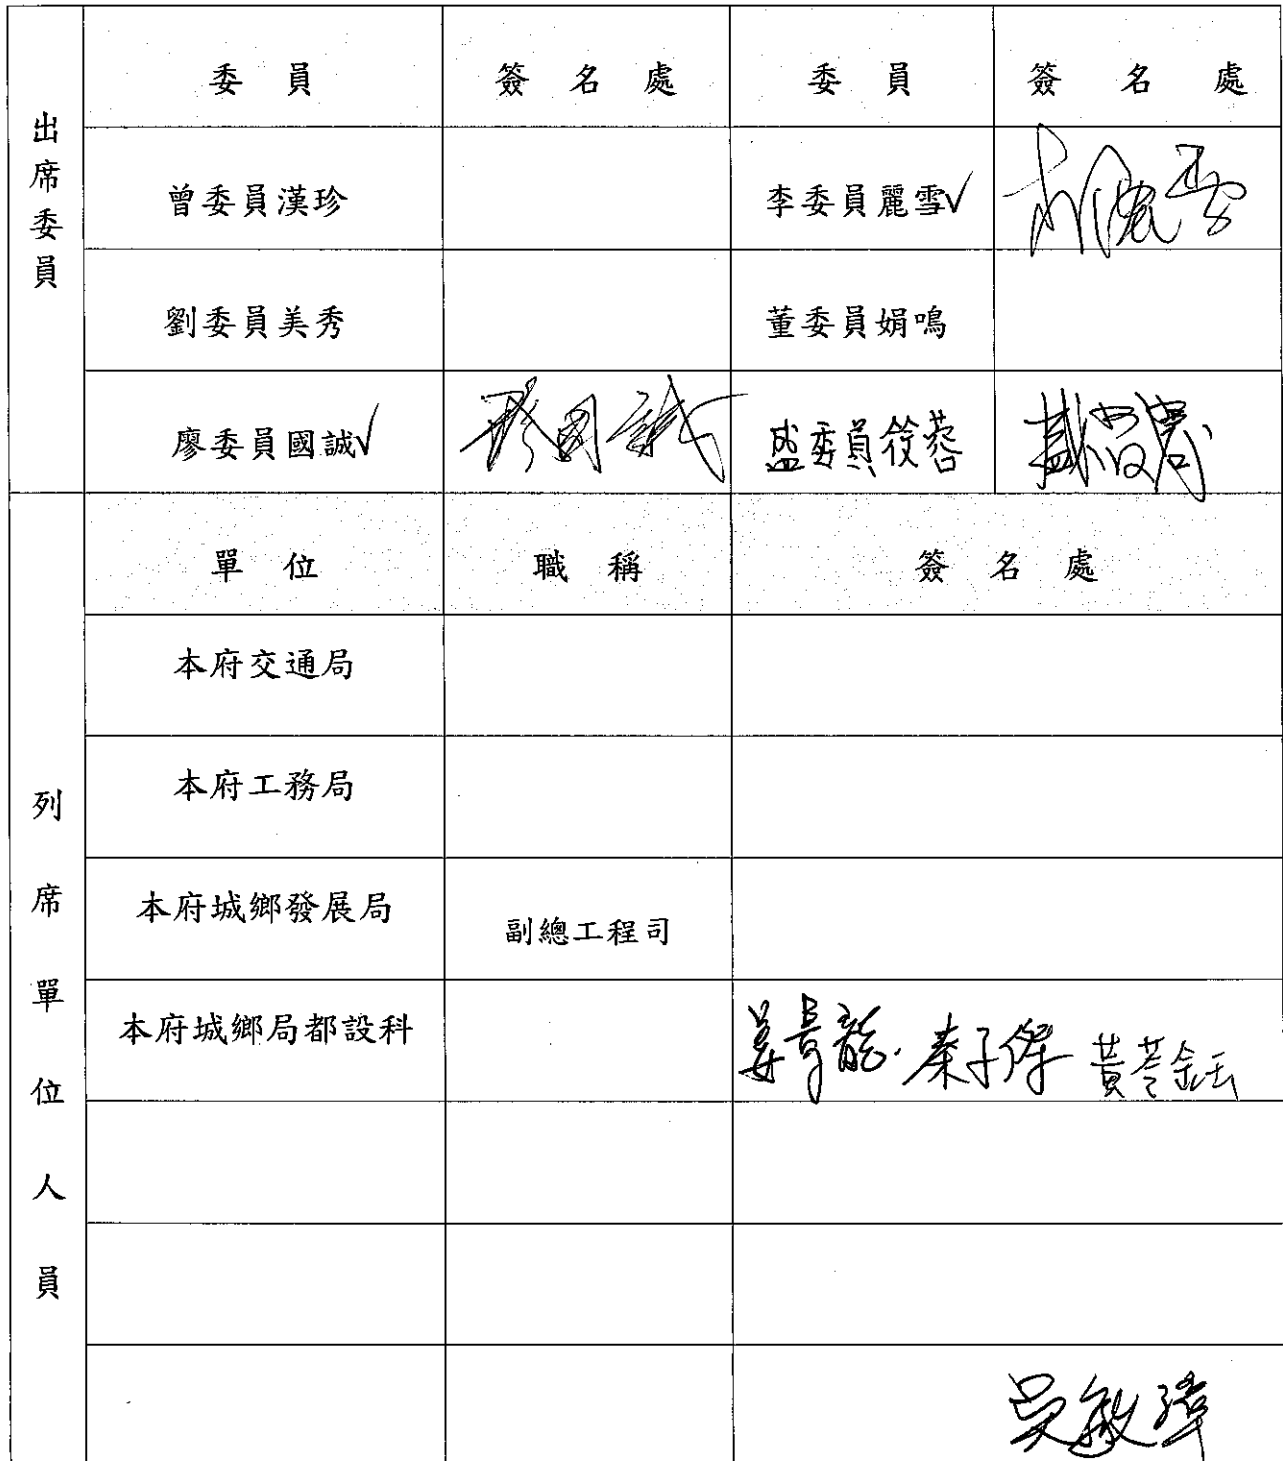 出席委員
委員 簽名處 委員 簽名處
曾委員漢珍 李委員麗雪✓ 李麗雪
劉委員美秀 董委員娟鳴
廖委員國誠✓ 廖國誠 盛委員筱蓉 盛筱蓉
列席單位人員
單位 職稱 簽名處
本府交通局
本府工務局
本府城鄉發展局 副總工程司
本府城鄉局都設科 秦子傑 黃苓鈺
吳敏瑋